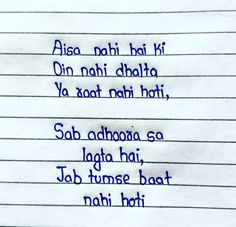 Aisa nahi hai ki
Din nahi dhalta
Ya raat nahi hoti,
Sab adhoora sa
lagta hai,
Jab tumse baat
nahi hoti